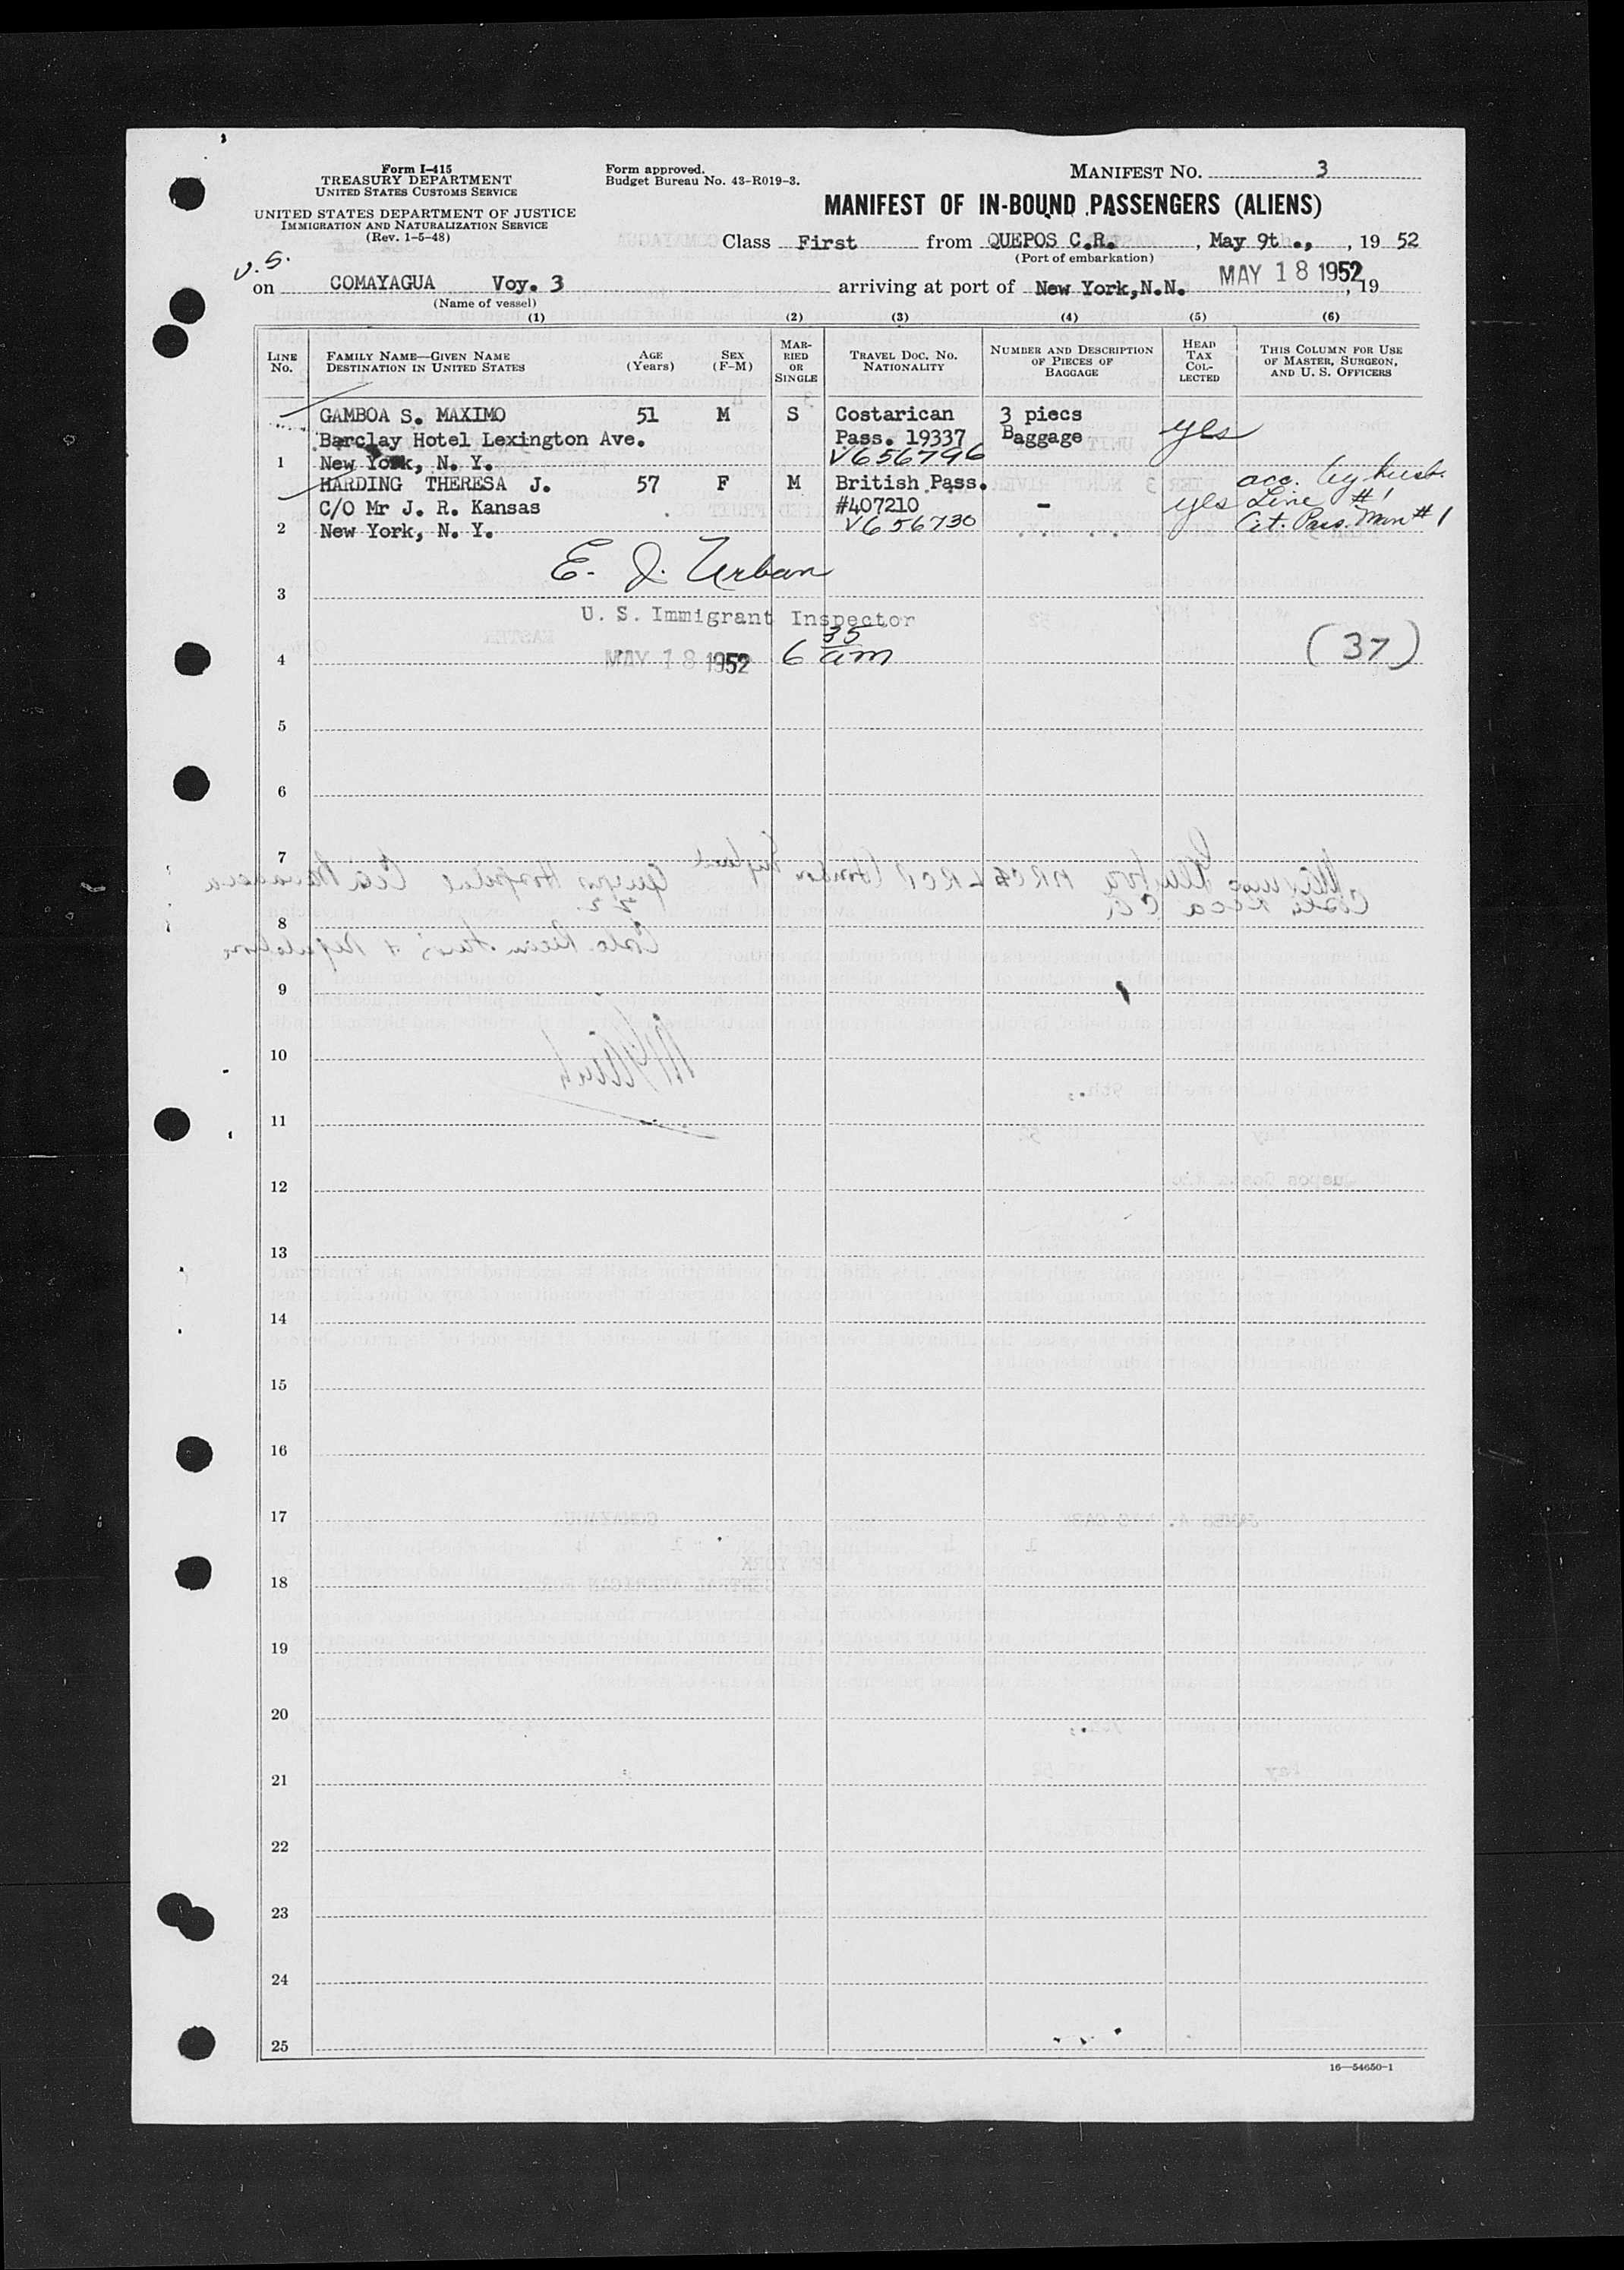 Form I-415
TREASURY DEPARTMENT
UNITED STATES CUSTOMS SERVICE
UNITED STATES DEPARTMENT OF JUSTICE
IMMIGRATION AND NATURALIZATION SERVICE
(Rev. 1-5-48)
Form approved.
Budget Bureau No. 43-R019-3.
MANIFEST NO. 3
MANIFEST OF IN-BOUND PASSENGERS (ALIENS)
Class First from QUEPOS C.R., May 9t ., , 19 52
(Port of embarkation)
v.s.
on COMAYAGUA Voy. 3 arriving at port of New York,N.N. MAY 18 1952, 19
(Name of vessel)
(1) (2) (3) (4) (5) (6)
LINE No. FAMILY NAME—GIVEN NAME DESTINATION IN UNITED STATES AGE (Years) SEX (F-M) MARRIED OR SINGLE TRAVEL DOC. NO. NATIONALITY NUMBER AND DESCRIPTION OF PIECES OF BAGGAGE HEAD TAX COLLECTED THIS COLUMN FOR USE OF MASTER, SURGEON, AND U. S. OFFICERS
GAMBOA S. MAXIMO 51 M S Costarican 3 piecs
Barclay Hotel Lexington Ave. Pass. 19337 Baggage yes
1 New York, N. Y. V656796
HARDING THERESA J. 57 F M British Pass. acc. by husb.
C/O Mr J. R. Kansas #407210 - yes Line #1
2 New York, N. Y. V656730 Cit. Pass. Man #1
E. J. Urban
3
U. S. Immigrant Inspector
4 MAY 18 1952 6 35 am (37)
5
6
7
8
9
10
11
12
13
14
15
16
17
18
19
20
21
22
23
24
25
16—54650-1